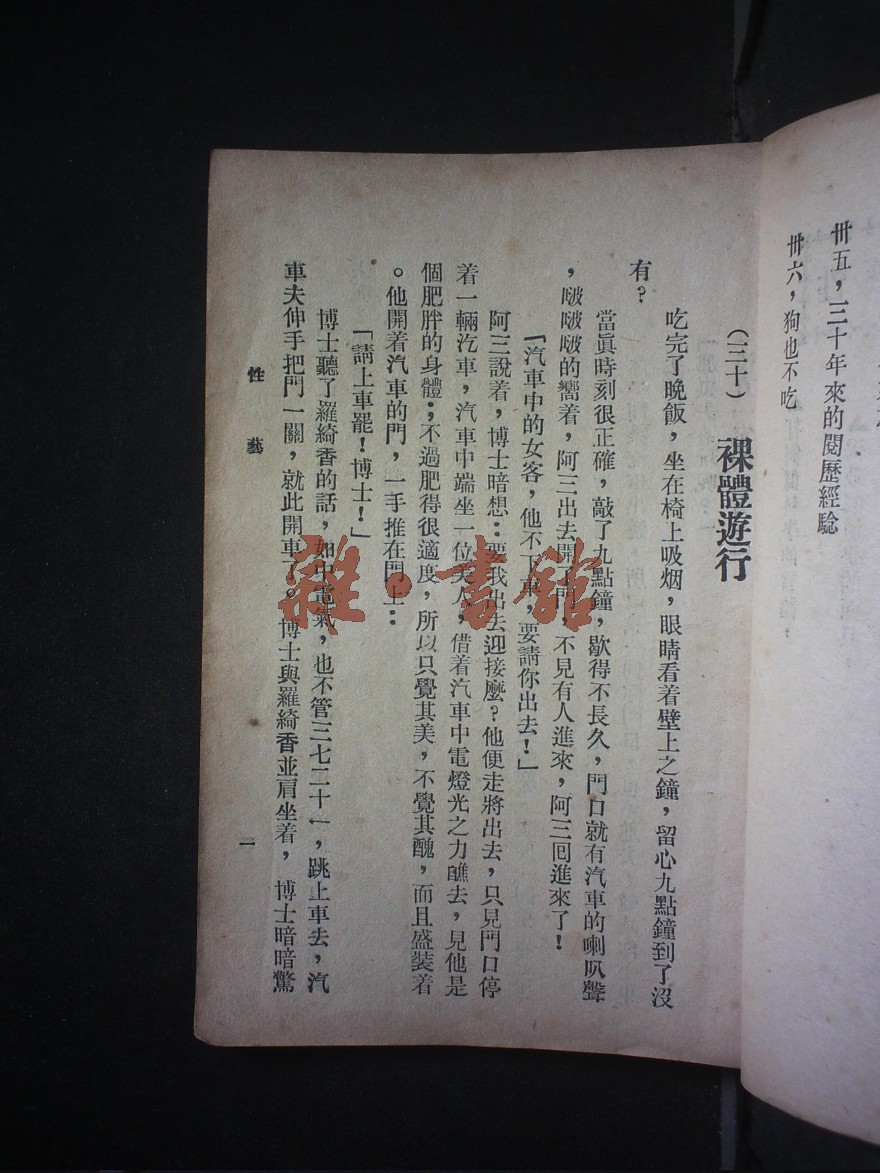 卅五，三十年來的閱歷經騐
卅六，狗也不吃
（三十）　裸體遊行
吃完了晚飯，坐在椅上吸烟，眼睛看着壁上之鐘，留心九點鐘到了沒
有？
當眞時刻很正確，敲了九點鐘，歇得不長久，門口就有汽車的喇叭聲
，啵啵啵的嚮着，阿三出去開了門，不見有人進來，阿三囘進來了！
「汽車中的女客，他不下車，要請你出去！」
阿三說着，博士暗想：要我出去迎接麼？他便走將出去，只見門口停
着一輛汽車，汽車中端坐一位美人，借着汽車中電燈光之力瞧去，見他是
個肥胖的身體；不過肥得很適度，所以只覺其美，不覺其醜，而且盛裝着
。他開着汽車的門，一手推在門上：
「請上車罷！博士！」
博士聽了羅綺香的話，如中電氣，也不管三七二十一，跳上車去，汽
車夫伸手把門一關，就此開車了。博士與羅綺香並肩坐着，博士暗暗驚
性藝
一
雜·書館